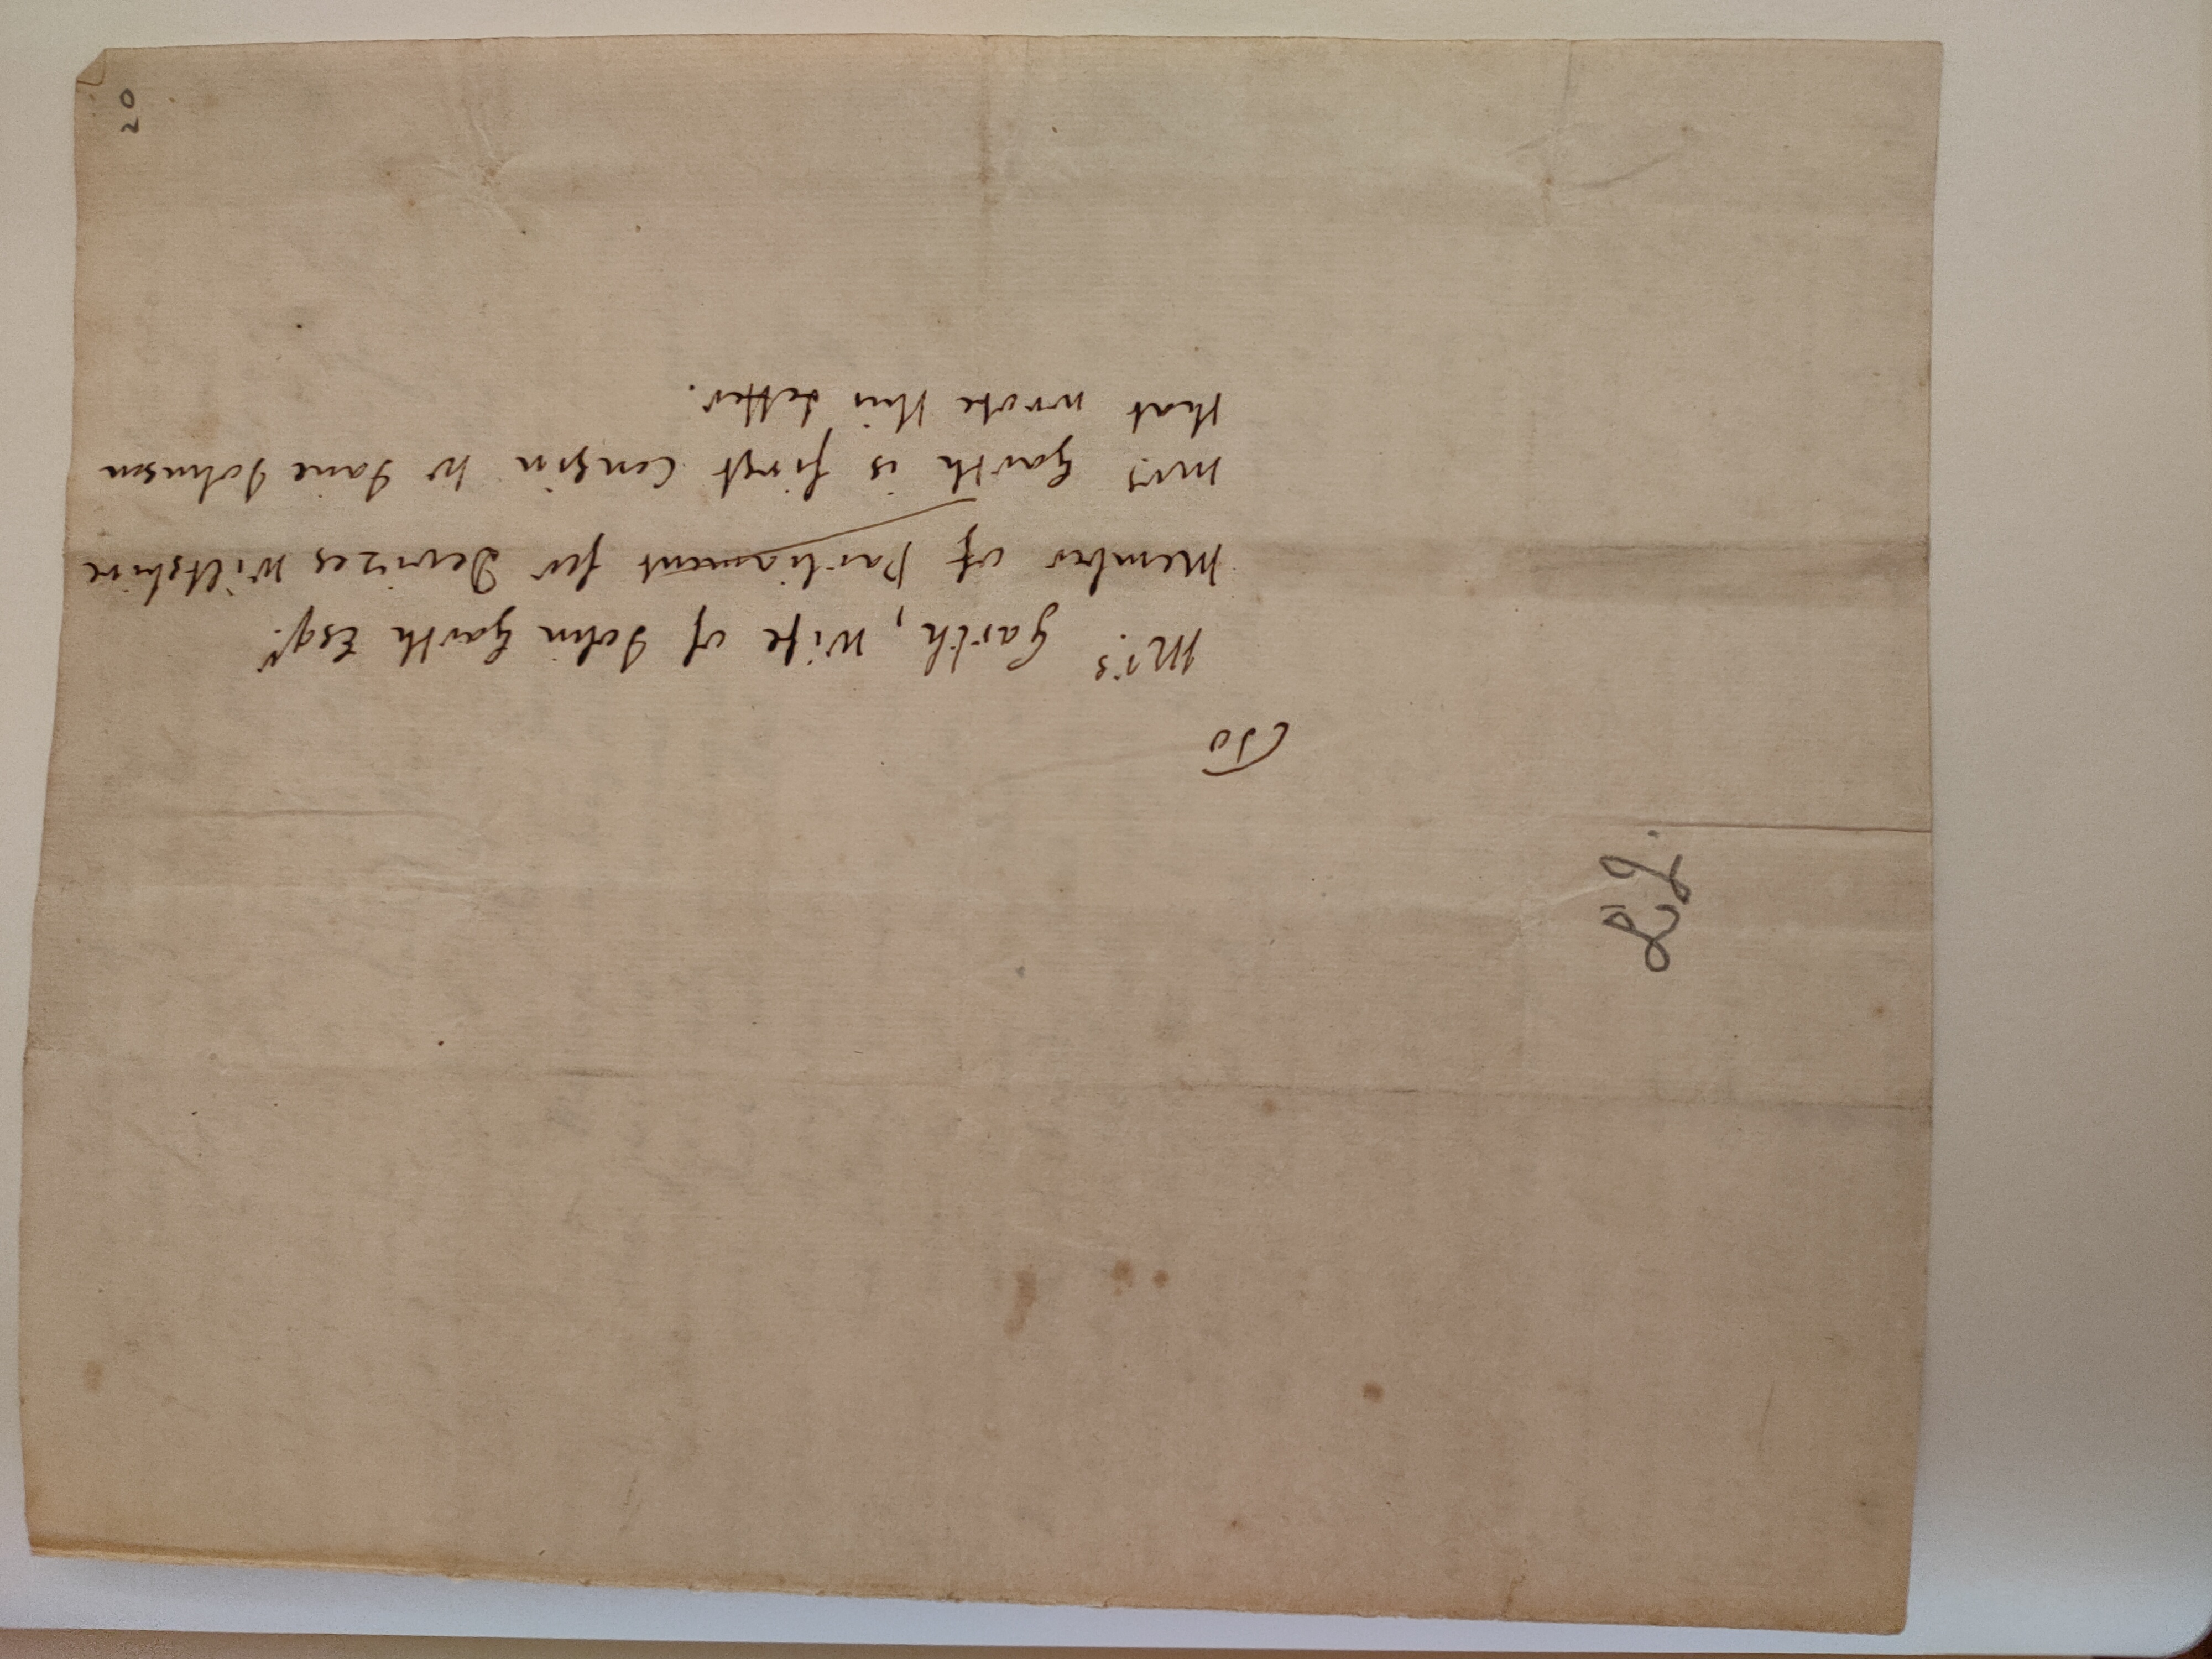 To
Mrs. Garth, Wife of John Garth Esqr.
Member of Parliament for Devizes Wiltshire
Mrs. Garth is first Cousin to Jane Johnson
that wrote this Letter.
20